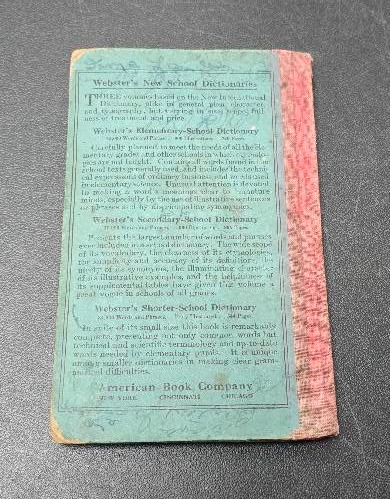 Webster's New School Dictionaries
THREE volumes based on the New International
Dictionary, alike in general plan, character,
and typography, but varying in size, scope, ful-
ness of treatment and price.
Webster's Elementary-School Dictionary
Words and Phrases, Illustrations, Pages
Carefully planned to meet the needs of all the ele-
mentary grades and other schools in which
are not taught. Contains all words found in the
school texts generally used, and includes the technical
expressions of ordinary business and words used
in elementary science. Unusual attention is devoted
to making a word's meanings clear to immature
minds, especially by the use of illustrative sentences
or phrases and by discriminating synonyms.
Webster's Secondary-School Dictionary
Words and Phrases, Illustrations, Pages
Presents the largest number of words and phrases
ever included in a school dictionary. The wide scope
of its vocabulary, the clearness of its etymologies,
the simplicity and accuracy of its definitions, the
of its synonyms, the illuminating character
of its illustrative examples, and the helpfulness of
its supplemental tables have given this volume a
great vogue in schools of all grades.
Webster's Shorter-School Dictionary
Words and Phrases, Illustrations, Pages
In spite of its small size this book is remarkably
complete, presenting not only common words but
technical and scientific terminology and up-to-date
words needed by elementary pupils. It is unique
among smaller dictionaries in making clear gram-
matical difficulties.
American Book Company
NEW YORK CINCINNATI CHICAGO